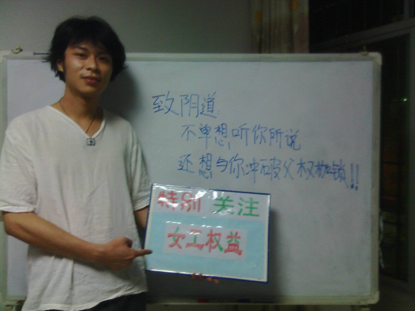 致阴道
不单想听你所说
还想与你冲破父权枷锁!!
特别 关注
女工权益